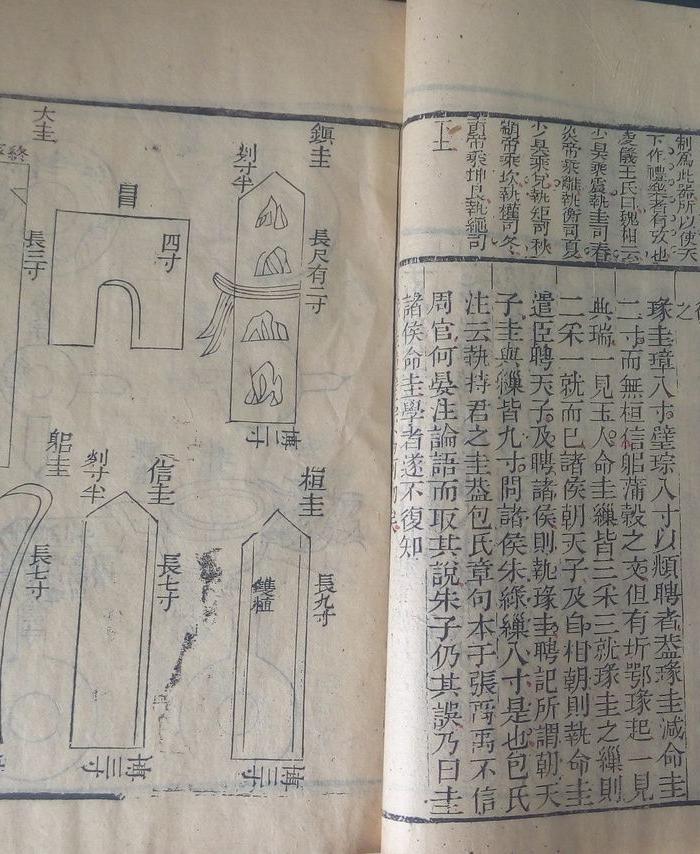 制為此器所以使天
下作禮樂者有攷也
王氏曰
乘震執圭司春
炎帝乘離執衡司夏
少昊乘兌執矩司秋
顓帝乘坎執權司冬
黃帝乘坤艮執繩司
下土
之
瑑圭璋八寸璧琮八寸以頫聘者蓋瑑圭減命圭
二寸而無桓信躳蒲穀之文但有圻鄂瑑起一見
典瑞一見玉人命圭繅皆三采三就瑑圭之繅則
二采一就而已諸侯朝天子及自相朝則執命圭
遣臣聘天子及聘諸侯則執瑑圭聘記所謂朝天
子圭與繅皆九寸問諸侯朱綠繅八寸是也包氏
注云執持君之圭蓋包氏章句本于張禹禹不信
周官何晏注論語而取其說朱子仍其誤乃曰圭
諸侯命圭學者遂不復知
鎮圭
剡寸半
長尺有二寸
博三寸
冒
四寸
大圭
終葵
長三寸
桓圭
雙植
長九寸
博三寸
信圭
剡寸半
長七寸
博三寸
躳圭
長七寸